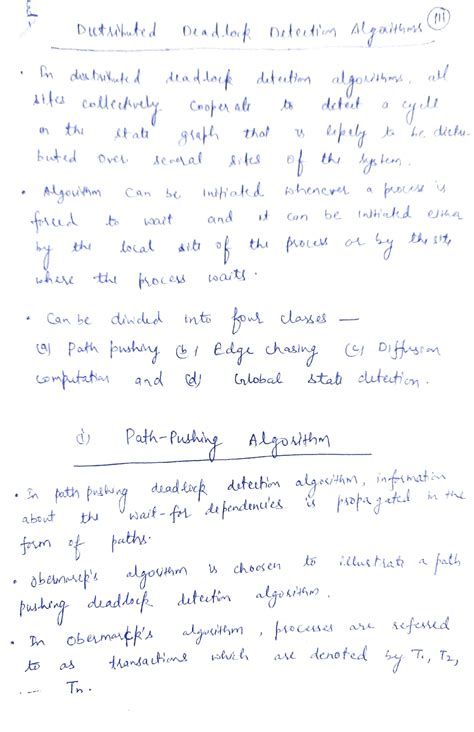 Distributed Deadlock Detection Algorithms (111)
• In distributed deadlock detection algorithms, all
sites collectively cooperate to detect a cycle
in the state graph that is likely to be distri-
buted over several sites of the system.
• Algorithm can be initiated whenever a process is
forced to wait and it can be initiated either
by the local site of the process or by the site
where the process waits.
• Can be divided into four classes —
(a) Path pushing (b) Edge chasing (c) Diffusion
computation and (d) Global state detection.
i) Path-Pushing Algorithm
• In path pushing deadlock detection algorithm, information
about the wait-for dependencies is propagated in the
form of paths.
• Obermarck's algorithm is choosen to illustrate a path
pushing deadlock detection algorithm.
• In Obermarck's algorithm, processes are referred
to as transactions which are denoted by T1, T2,
---- Tn.